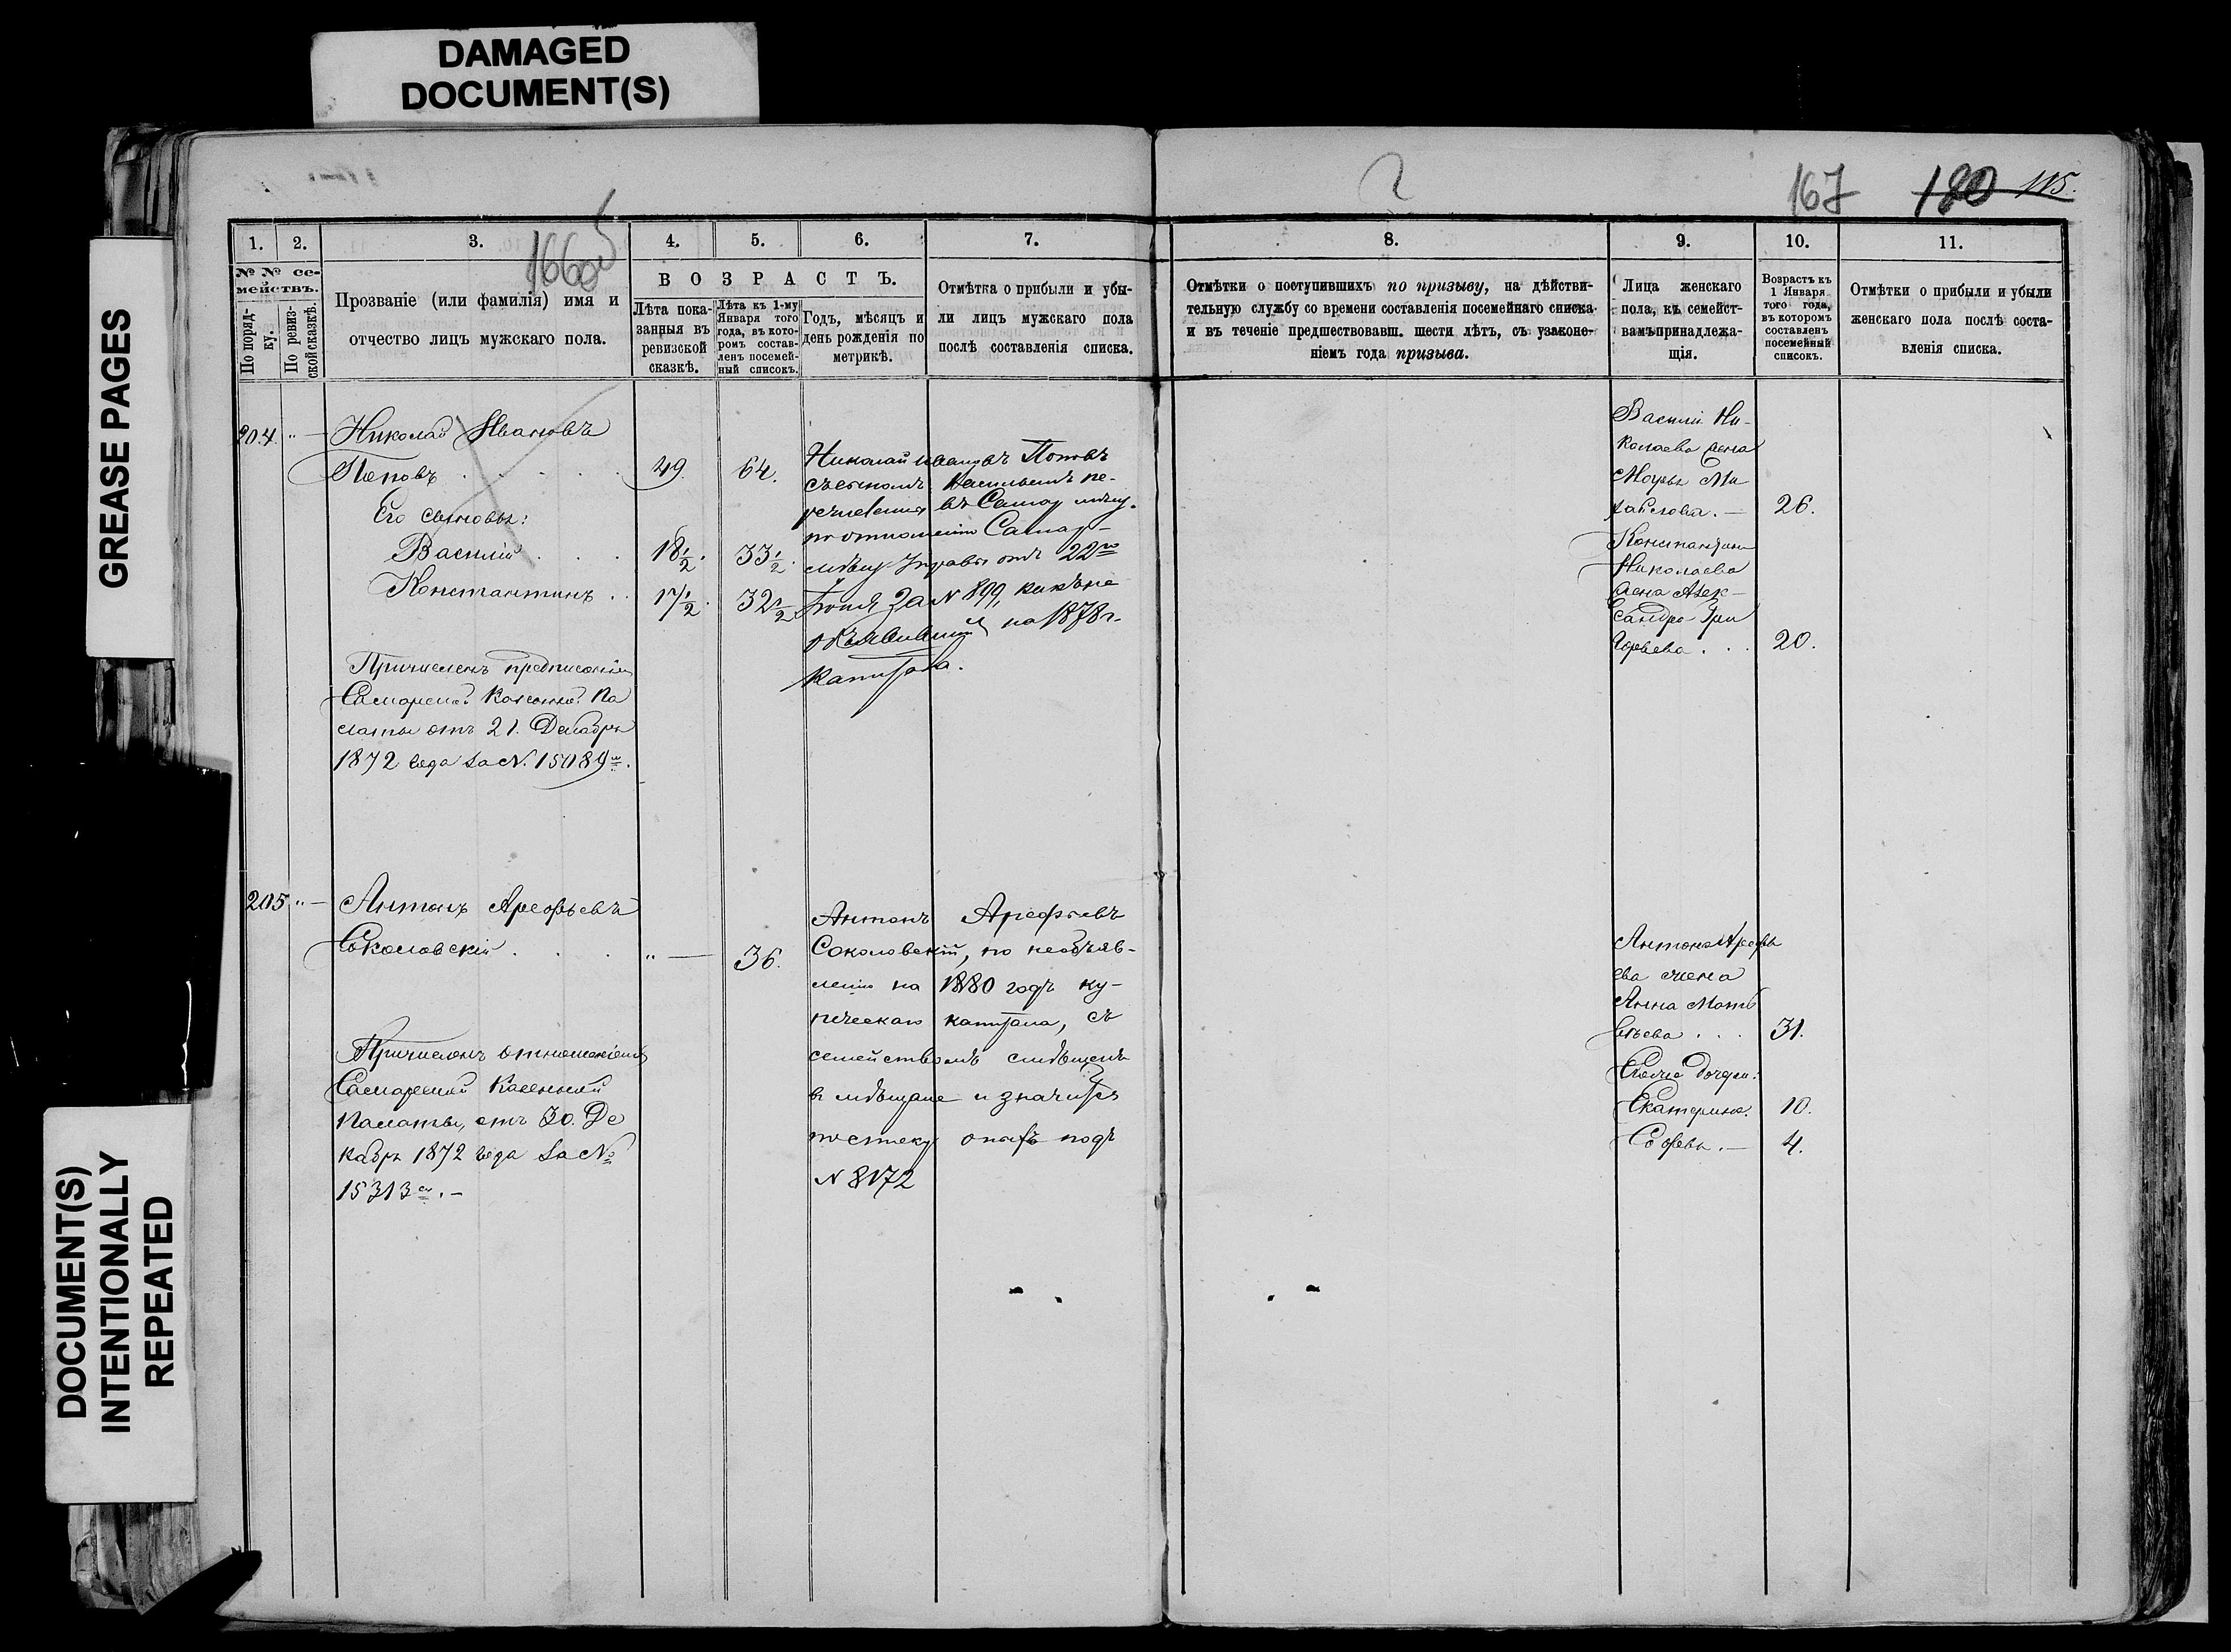 DAMAGED
DOCUMENT(S)
GREASE PAGES
DOCUMENT(S)
INTENTIONALLY
REPEATED
167
180 115.
1.
2.
3.
4.
5.
6.
7.
8.
9.
10.
11.
№ № се-
мействъ.
По поряд-
ку.
По ревиз-
ской сказкѣ.
Прозваніе (или фамилія) имя и
отчество лицъ мужскаго пола.
ВОЗРАСТЪ.
Лѣта пока-
занныя въ
ревизской
сказкѣ.
Лѣта къ 1-му
Января того
года, въ кото-
ромъ состав-
ленъ посемей-
ный списокъ.
Годъ, мѣсяцъ и
день рожденія по
метрикѣ.
Отмѣтка о прибыли и убы-
ли лицъ мужскаго пола
послѣ составленія списка.
Отмѣтки о поступившихъ по призыву, на дѣйстви-
тельную службу со времени составленія посемейнаго списка
и въ теченіе предшествовавш. шести лѣтъ, съ узаконе-
ніемъ года призыва.
Лица женскаго
пола, къ семейст-
вамъ принадлежа-
щія.
Возрастъ къ
1 Января
того года,
въ которомъ
составленъ
посемейный
списокъ.
Отмѣтки о прибыли и убыли
женскаго пола послѣ соста-
вленія списка.
204. „ — Николай Ивановъ
Поповъ . . . . 49. 64.
Его сыновья:
Василій . . . 18½. 33½.
Константинъ . . 17½. 32½
Причисленъ предписаніем
Самарской Казенной Па
латы отъ 21. Декабря
1872 года за №. 15089м.
Николай Ивановъ Поповъ
съ сыномъ Васильемъ пе-
речислены въ Самар мѣщ.
по отношенію Самар-
мѣщ Управы отъ 22го
за № 899, какъ не
объявившій на 1878 г.
капитала.
Василія Ни-
колаева жена
Ми
хайлова. — 26.
Константина
Николаева
жена Алек-
сандра Гри
горьева . . . 20.
205 „ — Антонъ Арефьевъ
Соколовскій . . . „ — 36.
Причисленъ отношеніемъ
Самарской Казенной
Палаты, отъ 30. Де
кабря 1872 года за №
15313м. —
Антонъ Арефьевъ
Соколовскій, по необъяв-
ленію на 1880 годъ ку-
печескаго капитала, съ
семействомъ смѣщенъ
в мѣщане и значится
по опись подъ
№ 8172
Антона Арефь
ева жена
Анна Матв
ѣева . . . 31.
дочери:
Екатерина. 10.
Софья. — 4.